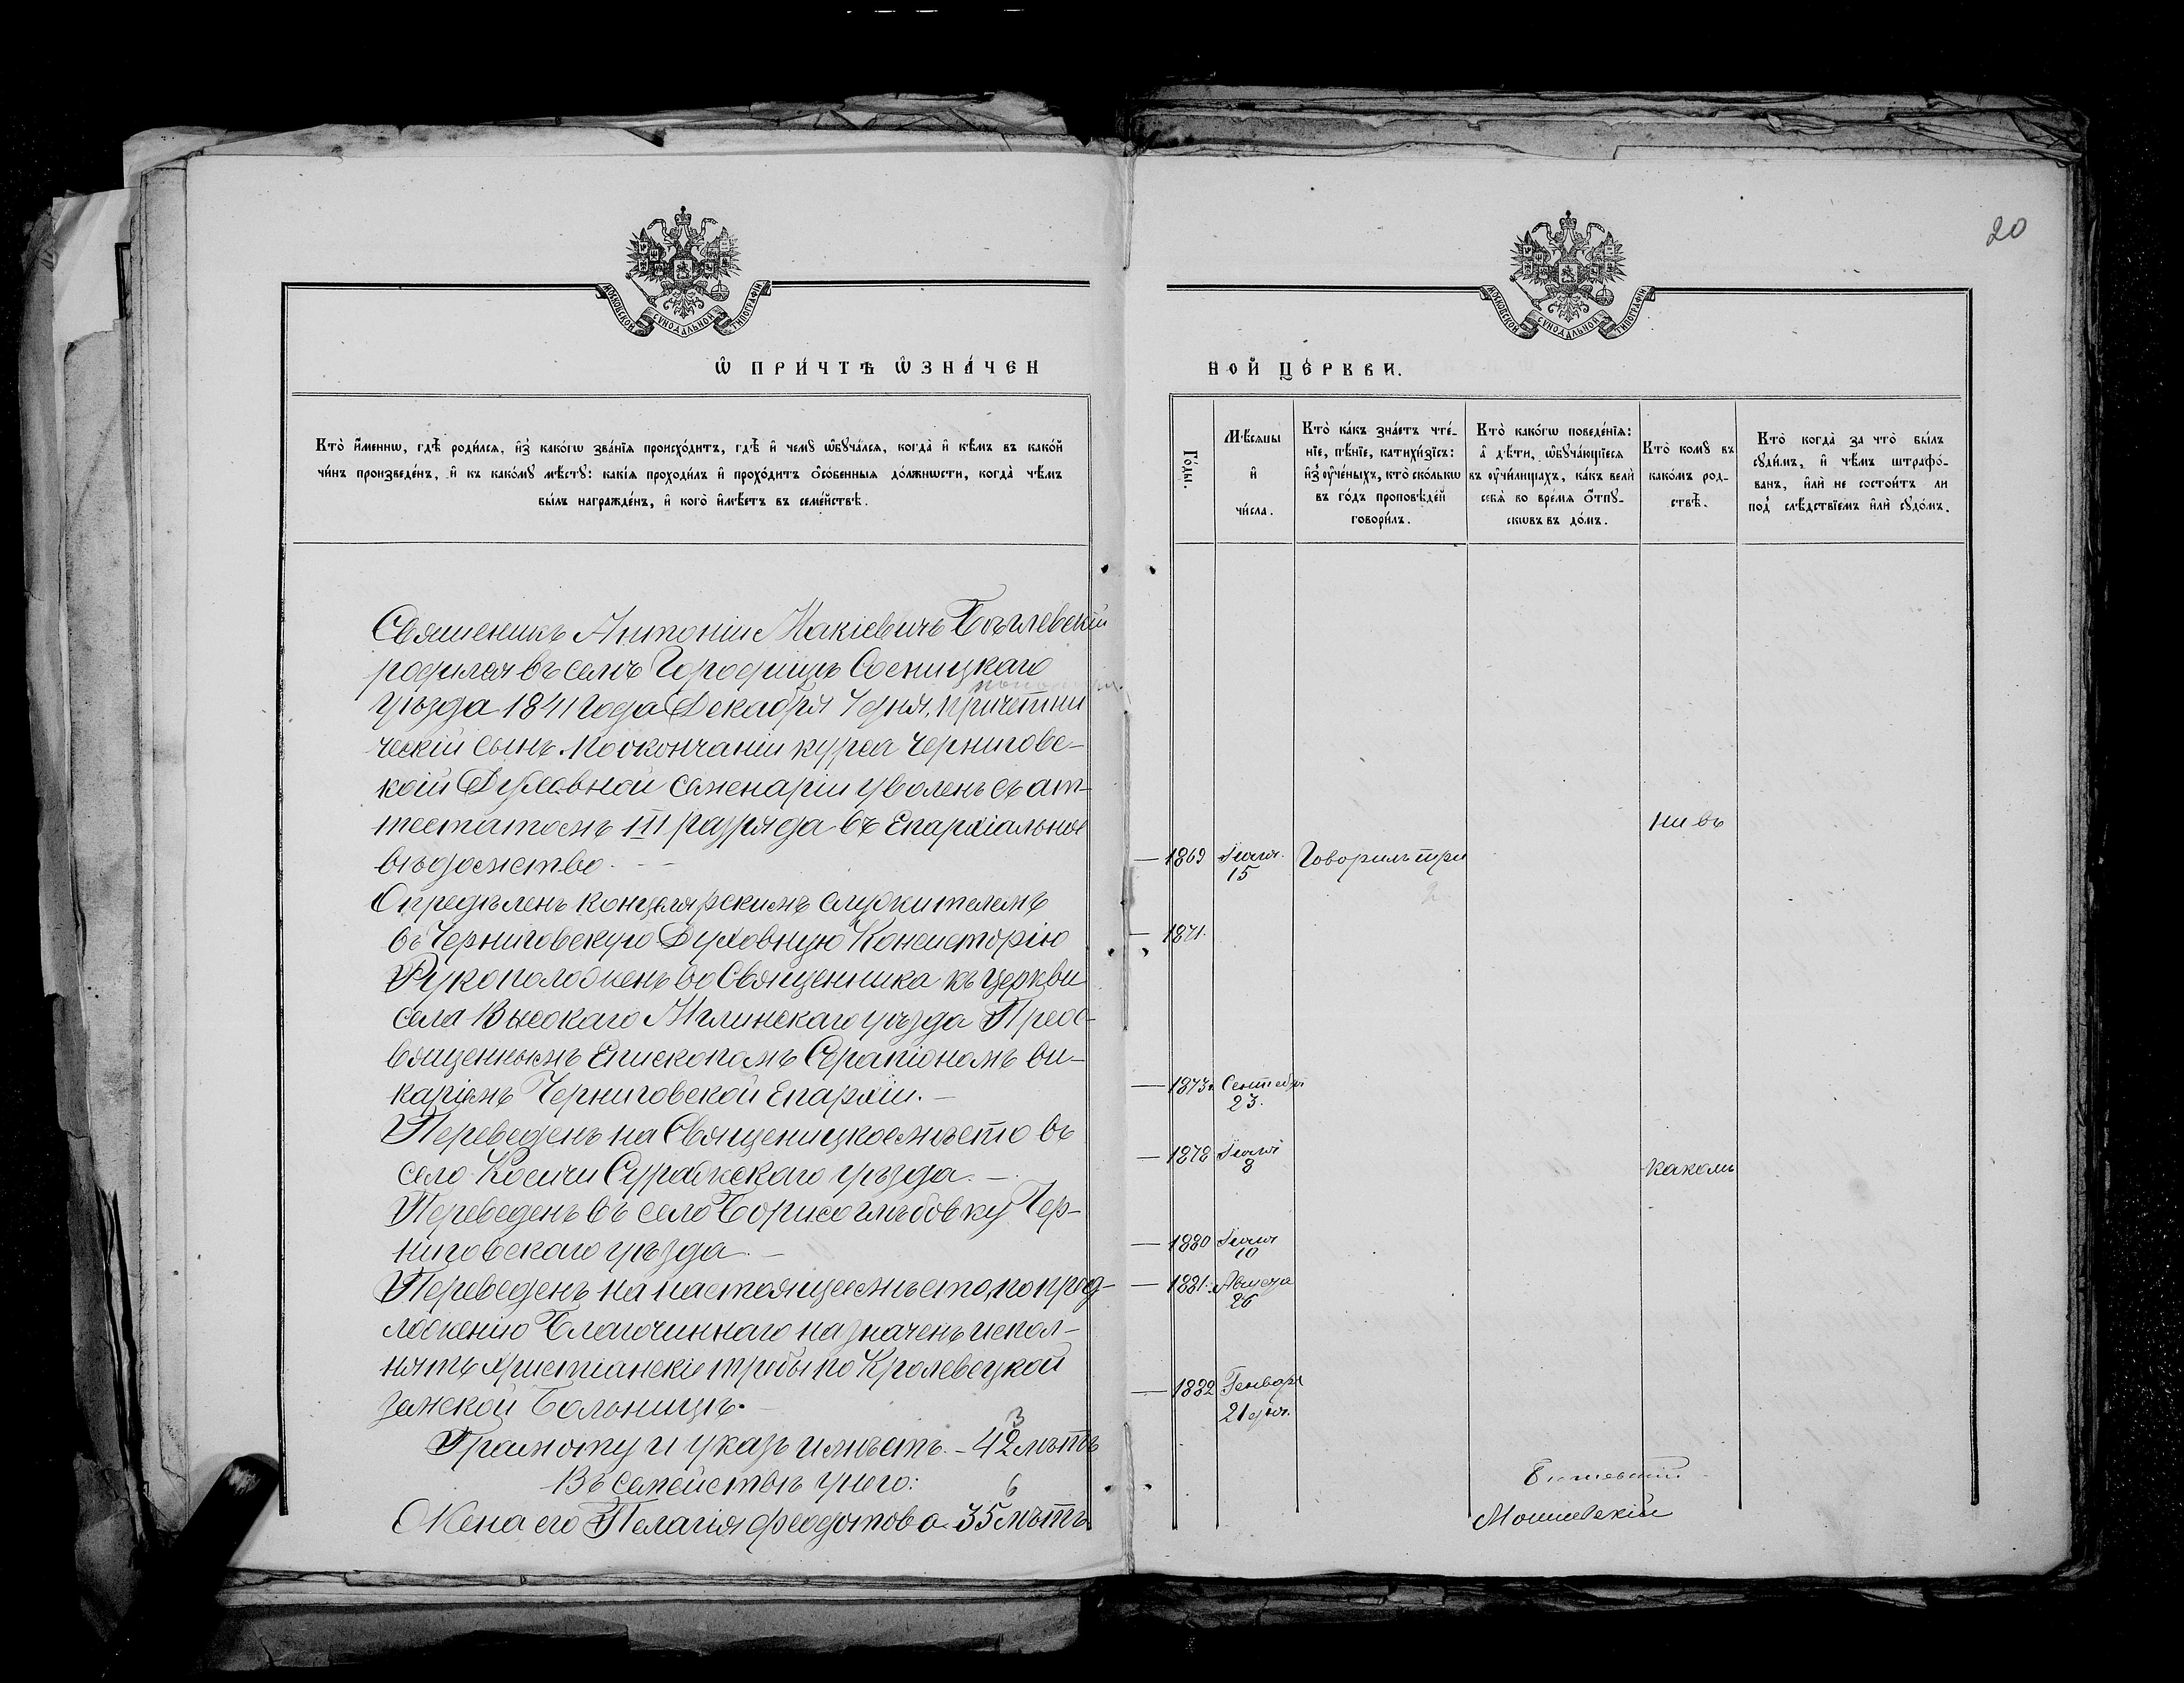 20
МОСКОВСКОЙ СѴНОДАЛЬНОЙ ТИПОГРАФІИ
МОСКОВСКОЙ СѴНОДАЛЬНОЙ ТИПОГРАФІИ
Ѡ ПРИ́ЧТѢ ѠЗНА́ЧЕН
НОЙ ЦЕ́РКВИ.
Кто̀ и҆́меннѡ, гдѣ̀ роди́лсѧ, и҆з̾ како́гѡ зва́нїѧ происхо́дитъ, гдѣ̀ и҆ чемꙋ̀ ѡ҆бꙋча́лсѧ, когда̀ и҆ кѣ́мъ въ како́й
чи́нъ произведе́нъ, и҆ къ како́мꙋ мѣ́стꙋ: какі̑ѧ проходи́лъ и҆ прохо́дитъ ѻ҆со́бенныѧ до́лжнѡсти, когда̀ чѣ́мъ
бы́лъ награжде́нъ, и҆ кого̀ и҆мѣ́етъ въ семе́йствѣ.
Го́ды.
Мѣ́сѧцы
и҆
чи́сла.
Кто̀ ка́къ зна́етъ чте́-
нїе, пѣ́нїе, катихи́зїсъ:
и҆з̾ ᲂу҆че́ныхъ, кто̀ ско́лькѡ
въ го́дъ проповѣ́дей
говори́лъ.
Кто̀ како́гѡ поведе́нїѧ:
а҆ дѣ́ти, ѡ҆бꙋча́ющїесѧ
въ ᲂу҆чи́лищахъ, ка́къ велѝ
себѧ̀ во вре́мѧ ѻ҆́тпꙋ-
скѡвъ въ до́мъ.
Кто̀ комꙋ̀ въ
како́мъ род-
ствѣ̀.
Кто̀ когда̀ за что̀ бы́лъ
сꙋди́мъ, и҆ чѣ́мъ штрафо́-
ванъ, и҆лѝ не состои́тъ ли
под̾ слѣ́дствїемъ и҆лѝ сꙋдо́мъ.
Священикъ Антоній Макіевичъ
родился въ селѣ Городищѣ Сосницкаго
уѣзда 1841 года Декабря 4 дня, причетни
ческій сынъ. По окончаніи курса Черниговс-
кой Духовной Семенаріи уволенъ съ ат-
тестатомъ III разряда въ Епархіальное
вѣдомство. —
Опредѣленъ концелярскимъ служителемъ
въ Черниговскую Духовную Консисторію
Рукоположенъ во Священника къ церкви
села Высокаго Мглинскаго уѣзда Преос-
вященнымъ Епископомъ Серапіономъ ви-
каріемъ Черниговской Епархіи. —
Переведенъ на Священицкое мѣсто въ
село Косичи Суражскаго уѣзда. —
Переведенъ въ село Борисоглѣбовку Чер-
ниговскаго уѣзда. —
Переведенъ на настоящее мѣсто, по пред-
ложенію Благочиннаго назначенъ испол-
нять христіанскіе требы по Кролевецкой
Земской Больницѣ. —
3
Грамоту и указъ имѣетъ. — 42 лѣтъ
Въ семействѣ у него:
6
Жена его Пелагія Феодотова 35 лѣтъ
— 1869
15
Говорилъ три
ни въ
— 1871.
— 1873
Сентебря
23.
— 1878
8
какомъ
— 1880
10
— 1881.
Августа
26
— 1882
Генваря
21 дня.